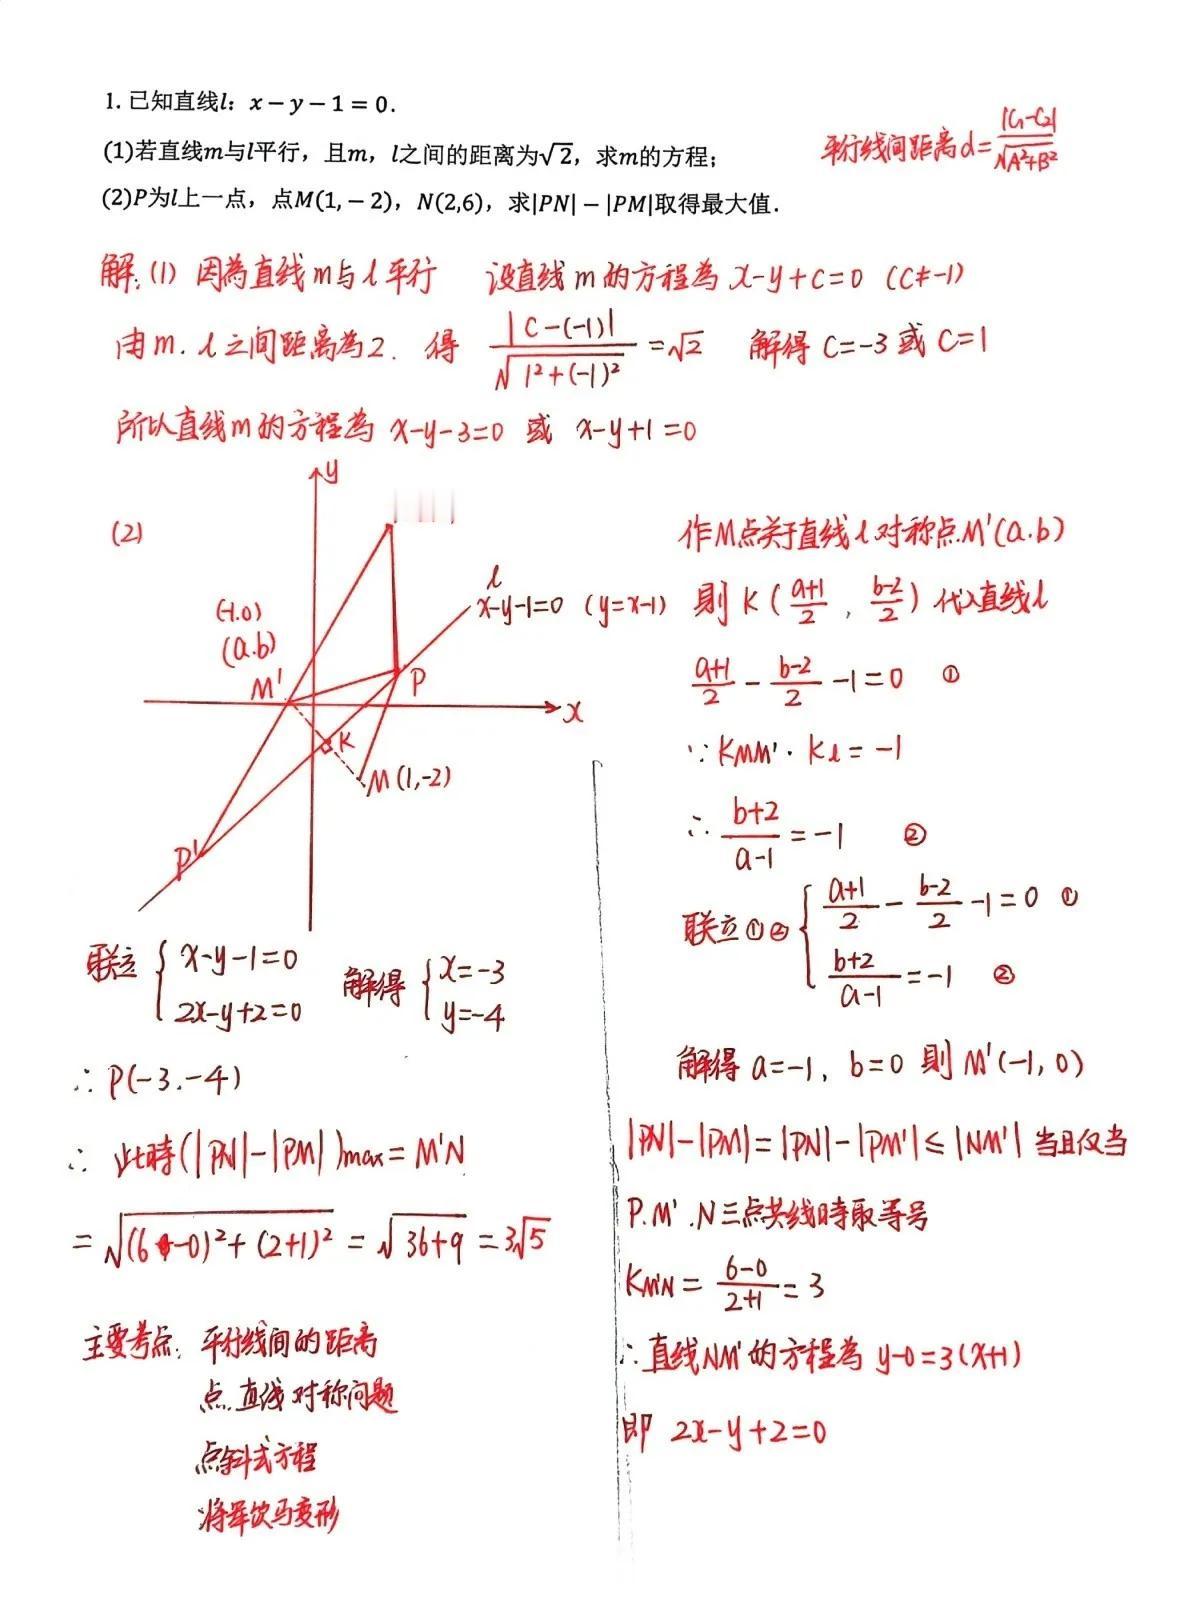 1. 已知直线l：x − y − 1 = 0.
(1)若直线m与l平行，且m，l之间的距离为√2，求m的方程；
平行线间距离d=|C₁-C₂|/√(A²+B²)
(2)P为l上一点，点M(1, −2)，N(2,6)，求|PN| − |PM|取得最大值.
解:(1) 因為直线m与l平行 设直线m的方程為 x-y+C=0 (C≠-1)
由m.l之间距离為2. 得 |C-(-1)|/√(1²+(-1)²) =√2 解得 C=-3 或 C=1
所以直线m的方程為 x-y-3=0 或 x-y+1=0
(2)
y
l
x-y-1=0 (y=x-1)
(-1.0)
(a.b)
M'
P
x
K
M(1,-2)
P'
联立 { x-y-1=0
2x-y+2=0
解得 { x=-3
y=-4
∴ P(-3.-4)
∴ 此時(|PN|-|PM|)max= M'N
= √((6-0)²+(2+1)²) = √(36+9) = 3√5
主要考点: 平行线间的距离
点.直线对称问题
点斜式方程
将军饮马变形
作M点关于直线l对称点M'(a.b)
則 K ( (a+1)/2 , (b-2)/2 ) 代入直线l
(a+1)/2 - (b-2)/2 -1=0 ①
∵ KMM'·Kl = -1
∴ (b+2)/(a-1) = -1 ②
联立①② { (a+1)/2 - (b-2)/2 -1=0 ①
(b+2)/(a-1) = -1 ②
解得 a=-1, b=0 則 M'(-1,0)
|PN|-|PM|=|PN|-|PM'|≤|NM'| 当且仅当
P.M'.N三点共线時取等号
KM'N = (6-0)/(2+1) = 3
∴直线NM'的方程為 y-0=3(x+1)
即 2x-y+2=0